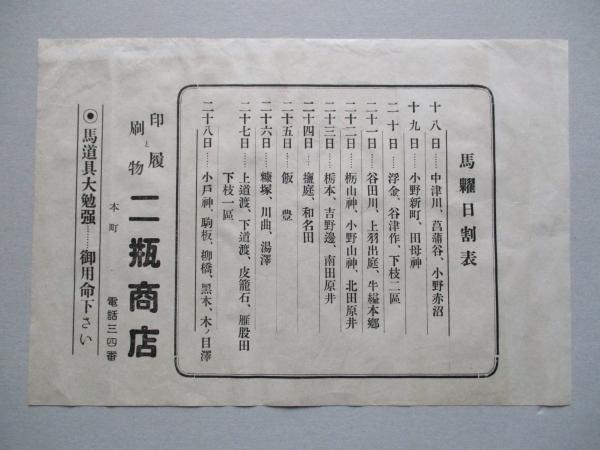 馬糶日割表
十八日……中津川、菖蒲谷、小野赤沼
十九日……小野新町、田母神
二十日……浮金、谷津作、下枝二區
二十一日……谷田川、上羽出庭、牛縊本郷
二十二日……栃山神、小野山神、北田原井
二十三日……栃本、吉野邊、南田原井
二十四日……鹽庭、和名田
二十五日……飯豊
二十六日……糠塚、川曲、湯澤
二十七日……上道渡、下道渡、皮籠石、雁股田
下枝一區
二十八日……小戸神、駒板、柳橋、黒木、木ノ目澤
印刷と履物
二瓶商店
本町
電話三四番
◉馬道具大勉强……御用命下さい